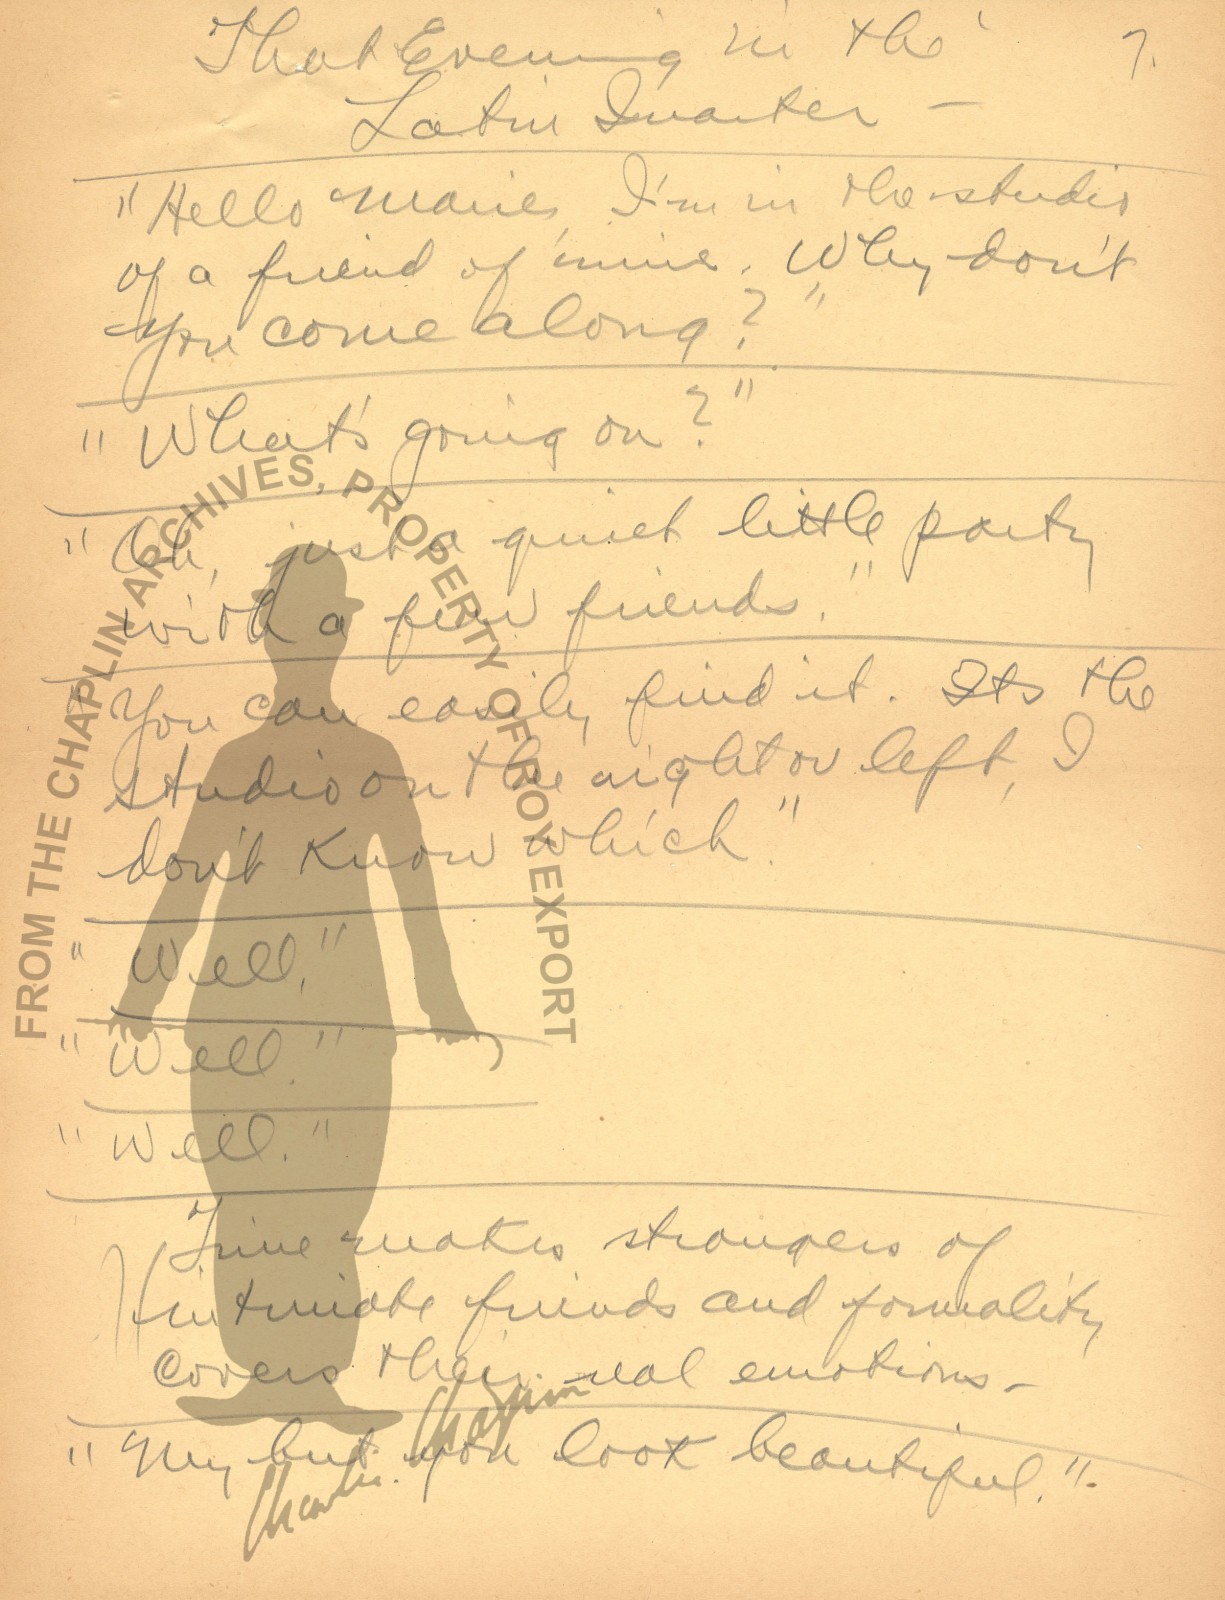 That Evening in the
7.
Latin Quarter —
"Hello Marie, I'm in the studio
of a friend of mine. Why don't
you come along?"
"What's going on?"
"Oh, just a quiet little party
with a few friends."
"You can easily find it. Its the
studio on the right or left, I
don't know which."
"Well,"
"Well."
"Well."
Time makes strangers of
intimate friends and formality
covers their real emotions —
"My but you look beautiful."
FROM THE CHAPLIN ARCHIVES, PROPERTY OF ROY EXPORT
Charlie Chaplin